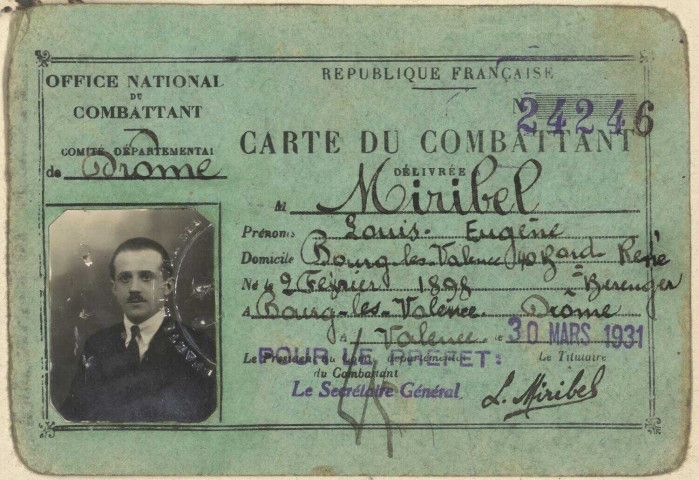 OFFICE NATIONAL
DU
COMBATTANT
COMITÉ DÉPARTEMENTAL
de Drôme
REPUBLIQUE FRANÇAISE
N 24246
CARTE DU COMBATTANT
DÉLIVRÉE
M Miribel
Prénoms Louis Eugène
Domicile Bourg-les-Valence 40 Bard René Berenger
Né le 2 Février 1898
A Bourg-les-Valence Drôme
A Valence le 30 MARS 1931
Le Président du Comité départemental Le Titulaire
du Combattant
POUR LE PREFET:
Le Secrétaire Général
L. Miribel